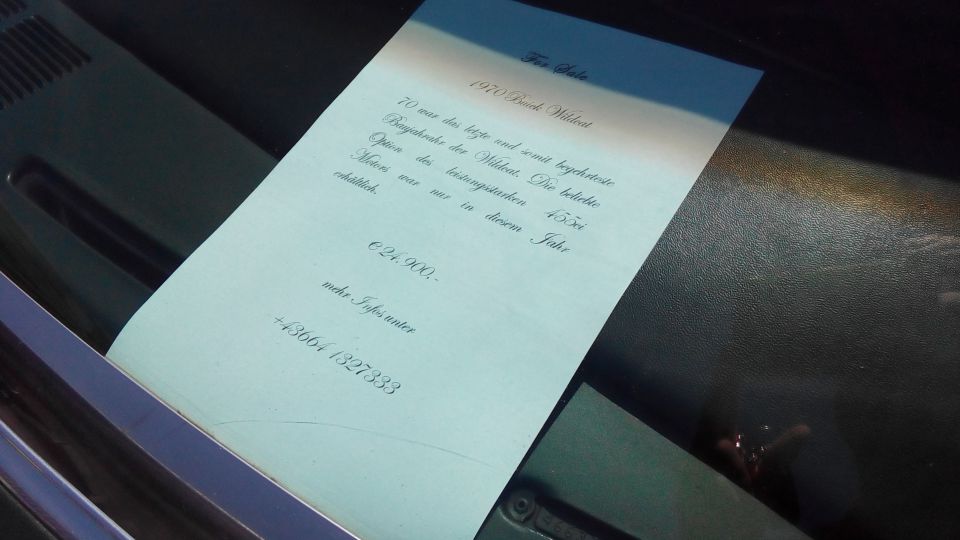 For Sale
1970 Buick Wildcat
70 war das letzte und somit begehrteste
Baujahrahr der Wildcat. Die beliebte
Option des leistungsstarken 455ci
Motors war nur in diesem Jahr
erhältlich.
€ 24.900,-
mehr Infos unter
+43664 1327333